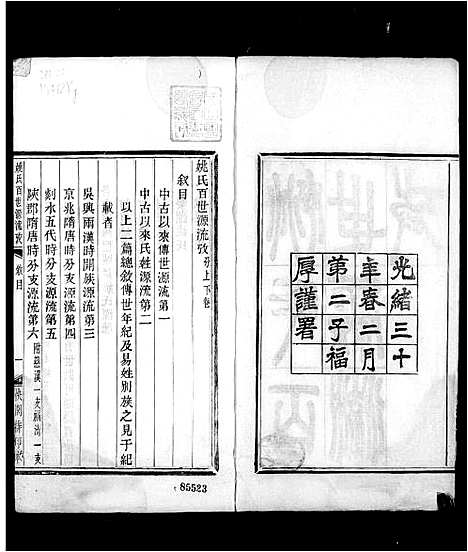 光緒三十
年春二月
第二子福
厚謹署
姚氏百世源流攷分上下卷
敘目
中古以來傳世源流第一
中古以來氏姓源流第二
以上二篇總敘傳世年紀及易姓別族之見于紀
載者
吳興兩漢時開族源流第三
京兆隋唐時分支源流第四
剡水五代時分支源流第五
陝郡隋唐時分支源流第六
姚氏百世源流攷
敘目
一
85523